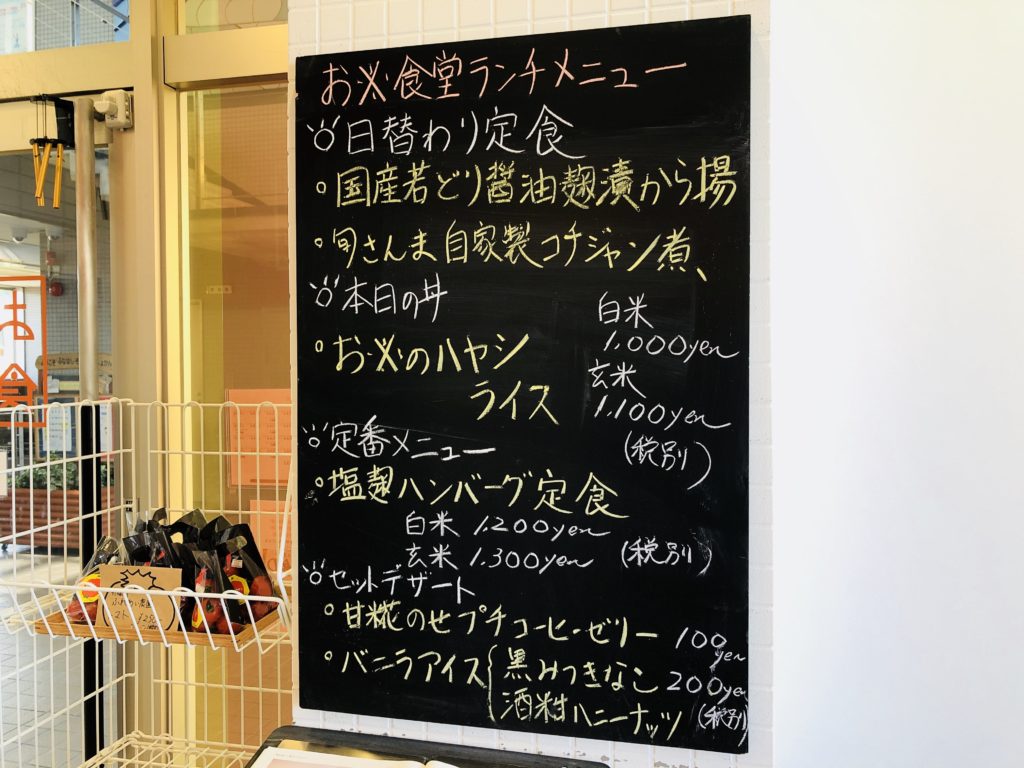 お米食堂ランチメニュー
日替わり定食
・国産若どり醤油麹漬から揚
・旬さんま自家製コチジャン煮、
本日の丼
・お米のハヤシ
ライス
白米
1,000yen
玄米
1,100yen
(税別)
定番メニュー
・塩麹ハンバーグ定食
白米 1,200yen
玄米 1,300yen (税別)
セットデザート
・甘糀のせプチコーヒーゼリー 100yen
・バニラアイス{黒みつきなこ 200yen
酒粕ハニーナッツ (税別)